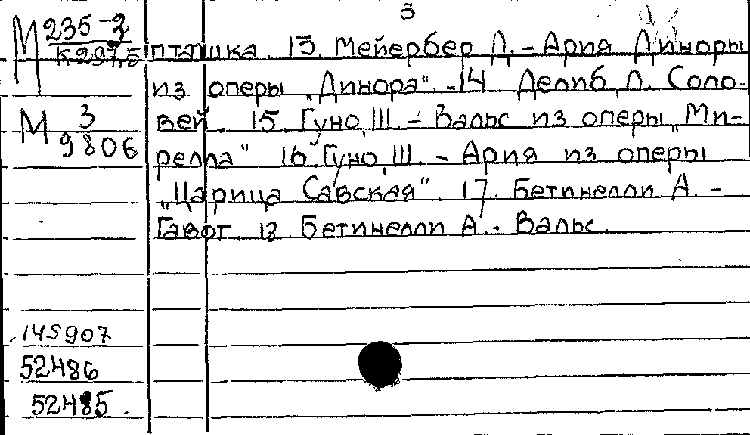 3
М 235-3
К 2975
пташка. 13. Мейербер Д. - Ария Диноры
из оперы „Динора". 14 Делиб Л. Соло-
вей. 15. Гуно Ш. - Вальс из оперы „Ми-
М 3
9806
релла" 16 Гуно Ш. - Ария из оперы
„Царица Савская". 17. Бетинелли А. -
Гавот 18 Бетинелли А. - Вальс.
145907
52486
52485.